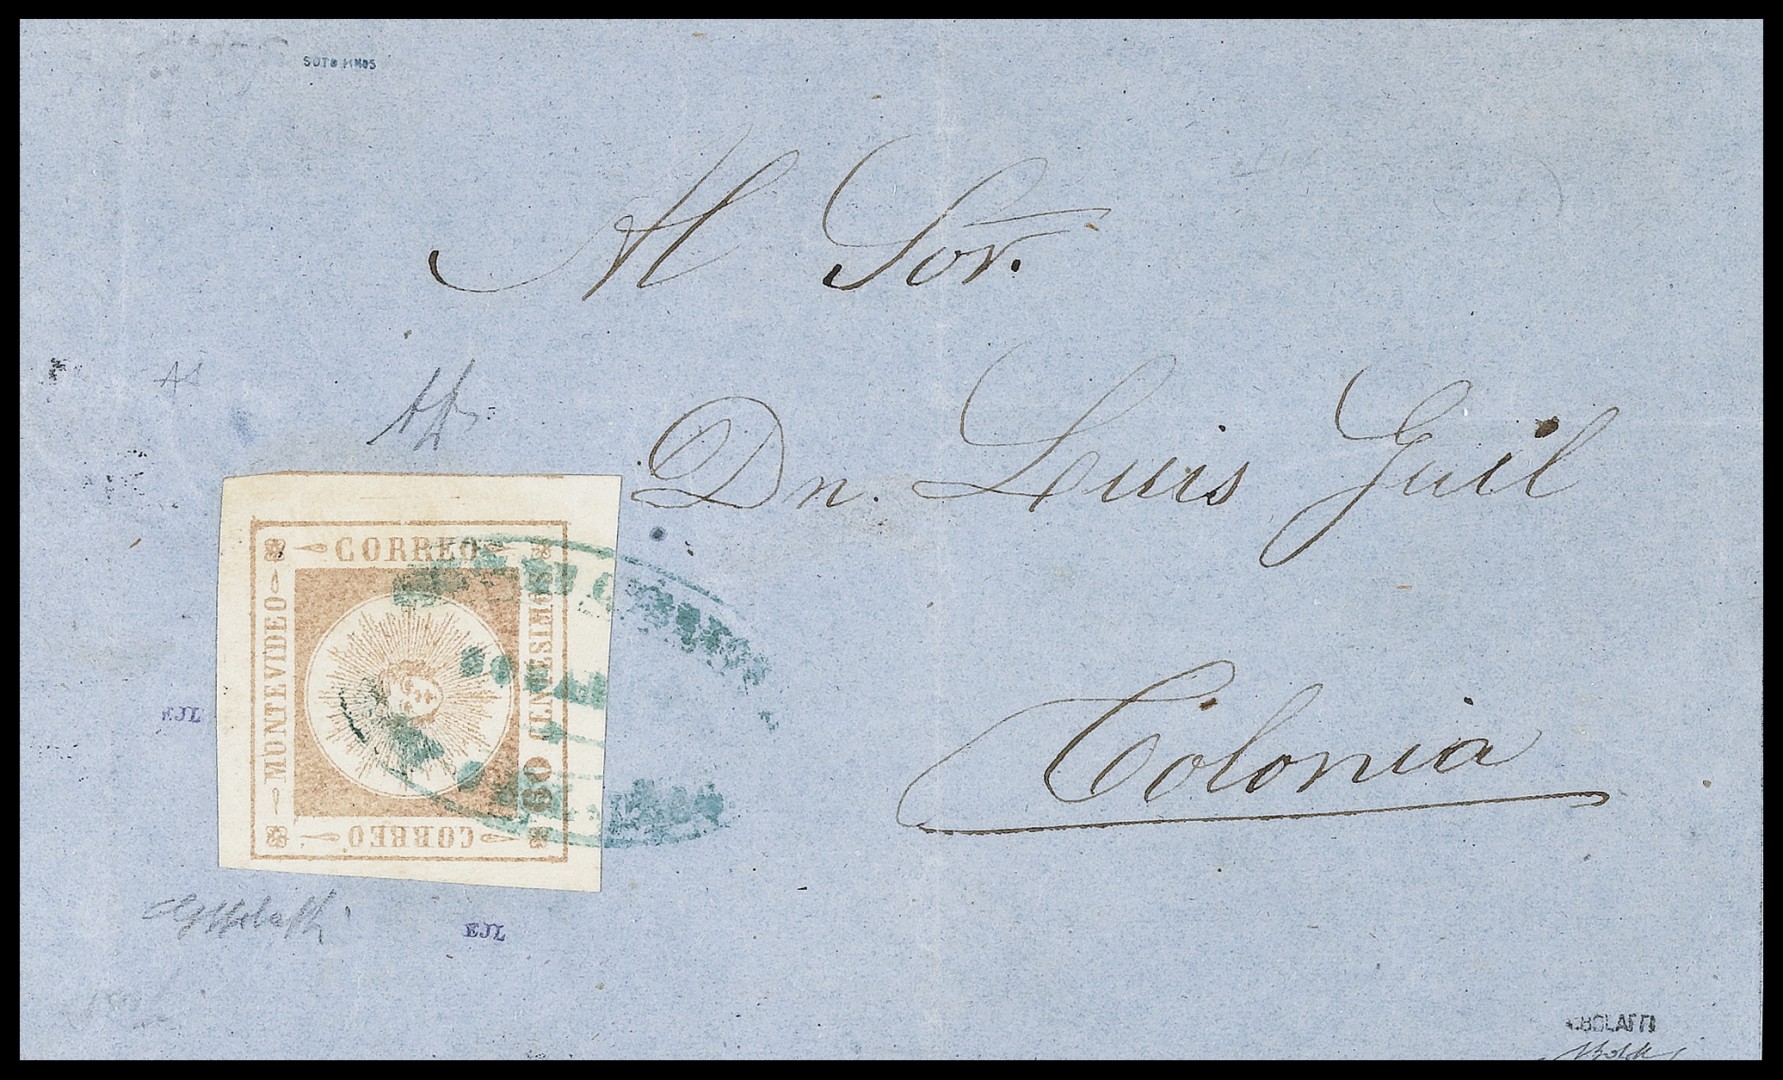 SOTO HNOS
Al Sor.
Dn. Luis Gil
Colonia
CORREO
MONTEVIDEO
60 CENTESIMOS
CORREO
EJL
EJL
BOLAFFI